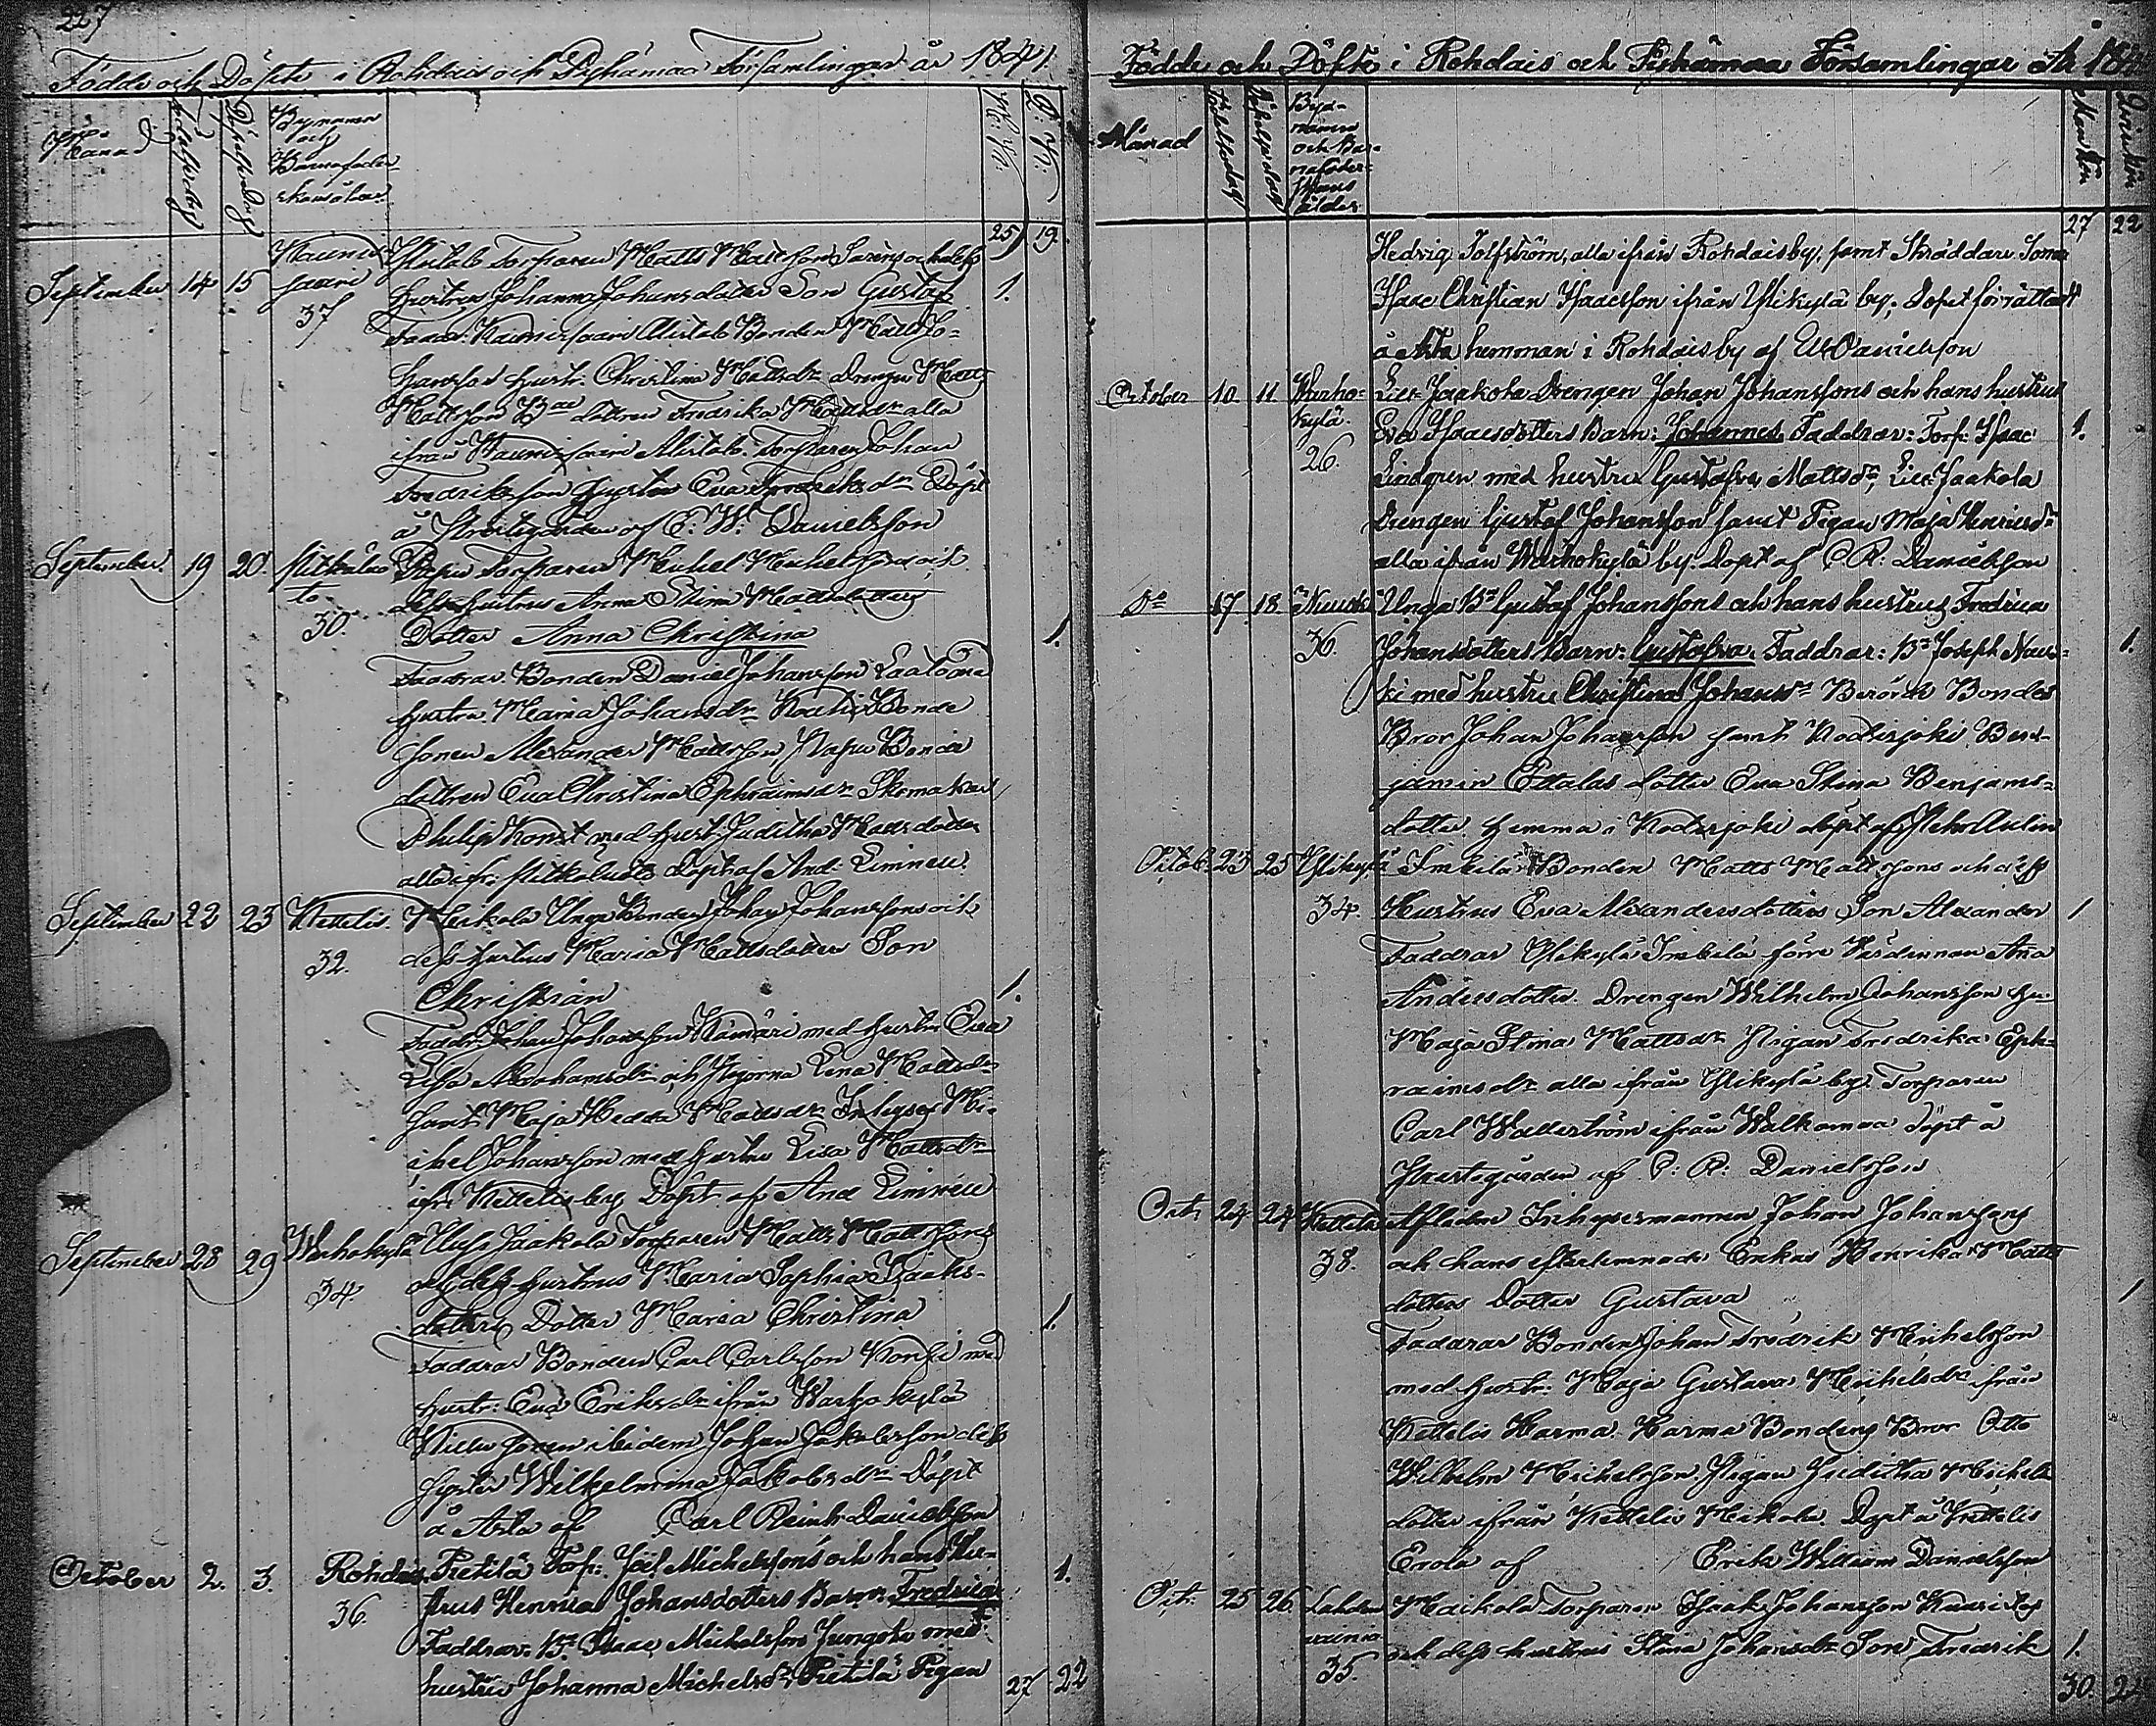 227
Födde och Döpte i Rohdais och Pyhämaa Församlingar år 1841.
Månad
Födelsedag
Döpelsedag
Bynamn
och
Barnafader-
skans ålder
M: K:
Q: K:
25 19
September 14 15
37
Mistola Torparen Matts Mattsson och dess
hustrus Johanna Johansdotter Son Gustaf 1.
Faddr: Bonden Matts Jo-
hansson hustr: Christina Mattsdr Drengen Matts
Mattsson dottren Fredrika Mattsdr alla
ifrån Torparen Johan
Fredriksson hustru Eva Fredriksdr Döpt
å Prestgården af E: W: Danielsson
September 19 20. Pitkäluo
to
30.
Torparen Michel Michelssons och
dess hustrus Anna Stina Mattsdotters
Dotter Anna Christina 1.
Faddrar Bonden Daniel Johansson
hustru Maria Johansdr Bonde
sonen Alexander Mattsson Bonde
dottren Eva Christina Ephraimsdr Skomakar
Philip med hust: Juditha Mattsdotter
alla ifr: Pitkäluoto Döpt af And: Limnell.
September 22 23 Kettelis.
32.
Meikola Unga Bonden Johan Johanssons och
dess hustrus Maria Mattsdotter Son
Christian 1.
Faddr: Johan Johansson med hustru Eva
Lisa Abrahamsdr och Pigorna Lena Mattsdr
samt Maja Hedda Mattsdr Inhyses Mi-
chel Johansson med hustru Lisa Mattsdr
ifr: Kettelis by Döpt af And Limnell
September 28 29 Warhokylä
34.
Jaakola Torparen Matts Mattssons
och dess hustrus Maria Sophia Isaaks-
dotters Dotter Maria Christina 1.
Faddrar Bonden Carl Carlsson med
hustr: Eva Eriksdr ifrån Warhokylä
sonen ibidem Johan Jakobsson dess
syster Wilhelmina Jakobsdr Döpt
å Arta af Carl Reinh Danielsson
October 2. 3. Rohdais
36.
Pietilä Torp: Joel Michelssons och hans hu-
strus Henrica Johansdotters Barn: Fredrica 1.
Faddrar: Bd Isaac Michelsson Jungola med
hustru Johanna Michelsdr, Pietilä Pigan
27 22
Födde och Döpte i Rohdais och Pyhämaa Församlingar År 184
Månad
Födelsedag
Döpelsedag
Byd-
namn
och Bar-
naföder-
skans
ålder
Man Kön
Qvin Kön
27 22
Hedvig Solfström, alla ifrån Rohdais by, samt Skräddare Sonen
Isaac Christian Isaacsson ifrån Ylikylä by; Dopet förrättadt
å Arta hemman i Rohdais by af EW Danielsson
October 10. 11. Warho-
kylä.
26.
Lill-Jaakola Drengen Johan Johanssons och hans hustrus
Eva Isaacsdotters Barn: Johannes Faddrar: Torp: Isaac 1.
Lindgren med hustru Gustafva Mattsdr, Lill-Jaakola
Drengen Gustaf Johansson samt Pigan Maja Henricsdr
alla ifrån Warhokylä by. Döpt af C R: Danielsson
Do 17 18.
36.
Unga Bd Gustaf Johanssons och hans hustrus Fredrica
Johansdotters Barn: Gustafva Faddrar: Bd Joseph 1.
ki med hustru Christina Johansdr Bonden
Bror Johan Johansson samt Kodisjoki Ben-
jamin Ettalas dotter Eva Stina Benjams-
dotter hemma i Kodisjoki döpt af
Octob: 23 25 Ylikylä
34.
Inkilä Bonden Matts Mattssons och dess
Hustrus Eva Alexandersdotters Son Alexander 1
Faddrar Ylikylä Inkilä förre Värdinnan Ana
Andersdotter. Drengen Wilhelm Johansson hu
Maja Stina Mattsdr Pigan Fredrika Eph-
raimsdr alla ifrån Ylikylä by Torparen
Carl Wallström ifrån Walkamaa Döpt å
Prestegården af C: R: Danielsson
Oct: 24 24 Kettelis
38.
Afledne Inhysesmannen Johan Johanssons
och hans efterlemnade Enkas Henrika Matts
dotters Dotter Gustava 1
Faddrar Bonden Johan Fredrik Michelsson
med hustr: Maja Gustava Michelsdr ifrån
Kettelis Harma. Harma Bondens Bror Otto
Wilhelm Michelsson Pigan Juditha Michels
dotter ifrån Kettelis Meikola. Döpt å Kettelis
Erola af Erik William Danielsson
Oct: 25 26.
35.
Maikola Torparen Isaak Johansson
och dess hustrus Stina Johansdr Son Fredrik 1.
30. 2